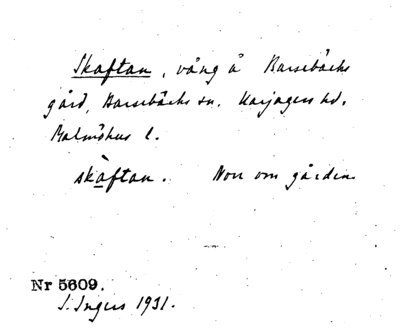 Skaftan, vång å Barsebäcks
gård, Barsebäcks sn. Harjagers hd.
Malmöhus l.
skàftan. Norr om gården
Nr 5609.
I. Ingers 1931.